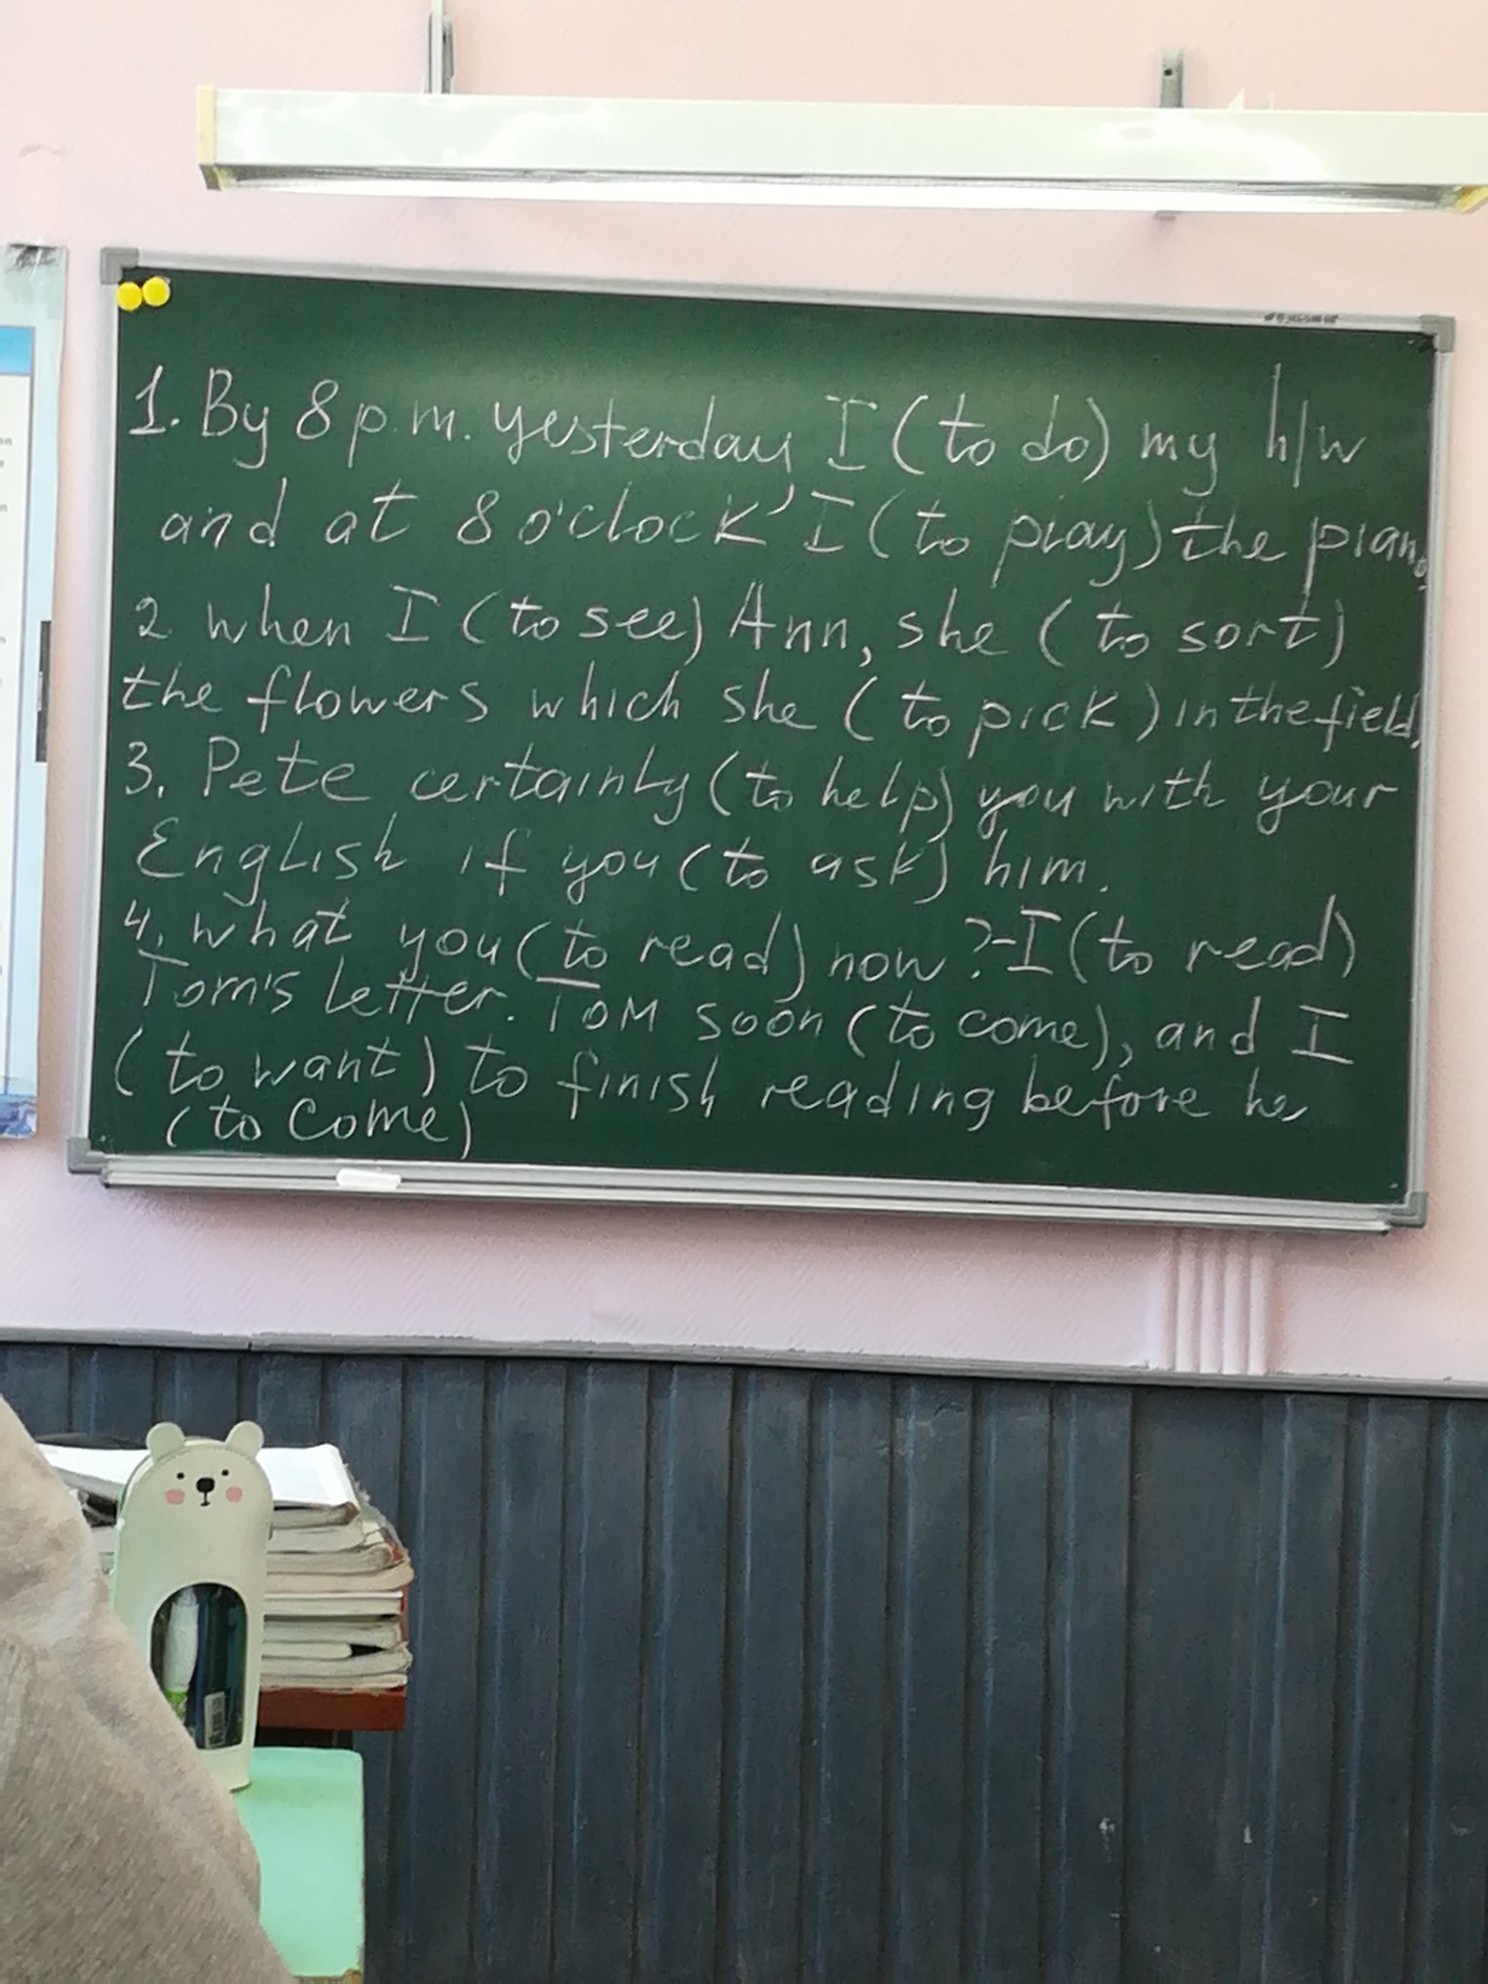 1. By 8 p.m. yesterday I (to do) my h/w
and at 8 o'clock I (to play) the piano
2 when I (to see) Ann, she (to sort)
the flowers which she (to pick) in the field.
3. Pete certainly (to help) you with your
English if you (to ask) him.
4. What you (to read) now? - I (to read)
Tom's letter. Tom soon (to come), and I
(to want) to finish reading before he
(to come)